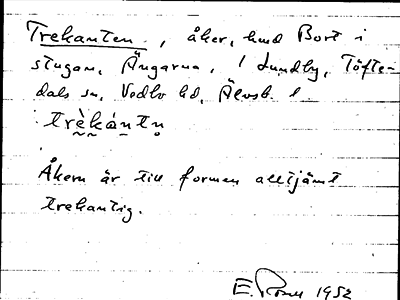 Trekanten, åker, hmd Bort i
stugan, Ängarna, i Lundby, Töfte-
dals sn, Vedbo hd, Älvsb. l.
trè̱ká̱ntn̥
Åkern är till formen alltjämt
trekantig.
E. 1952